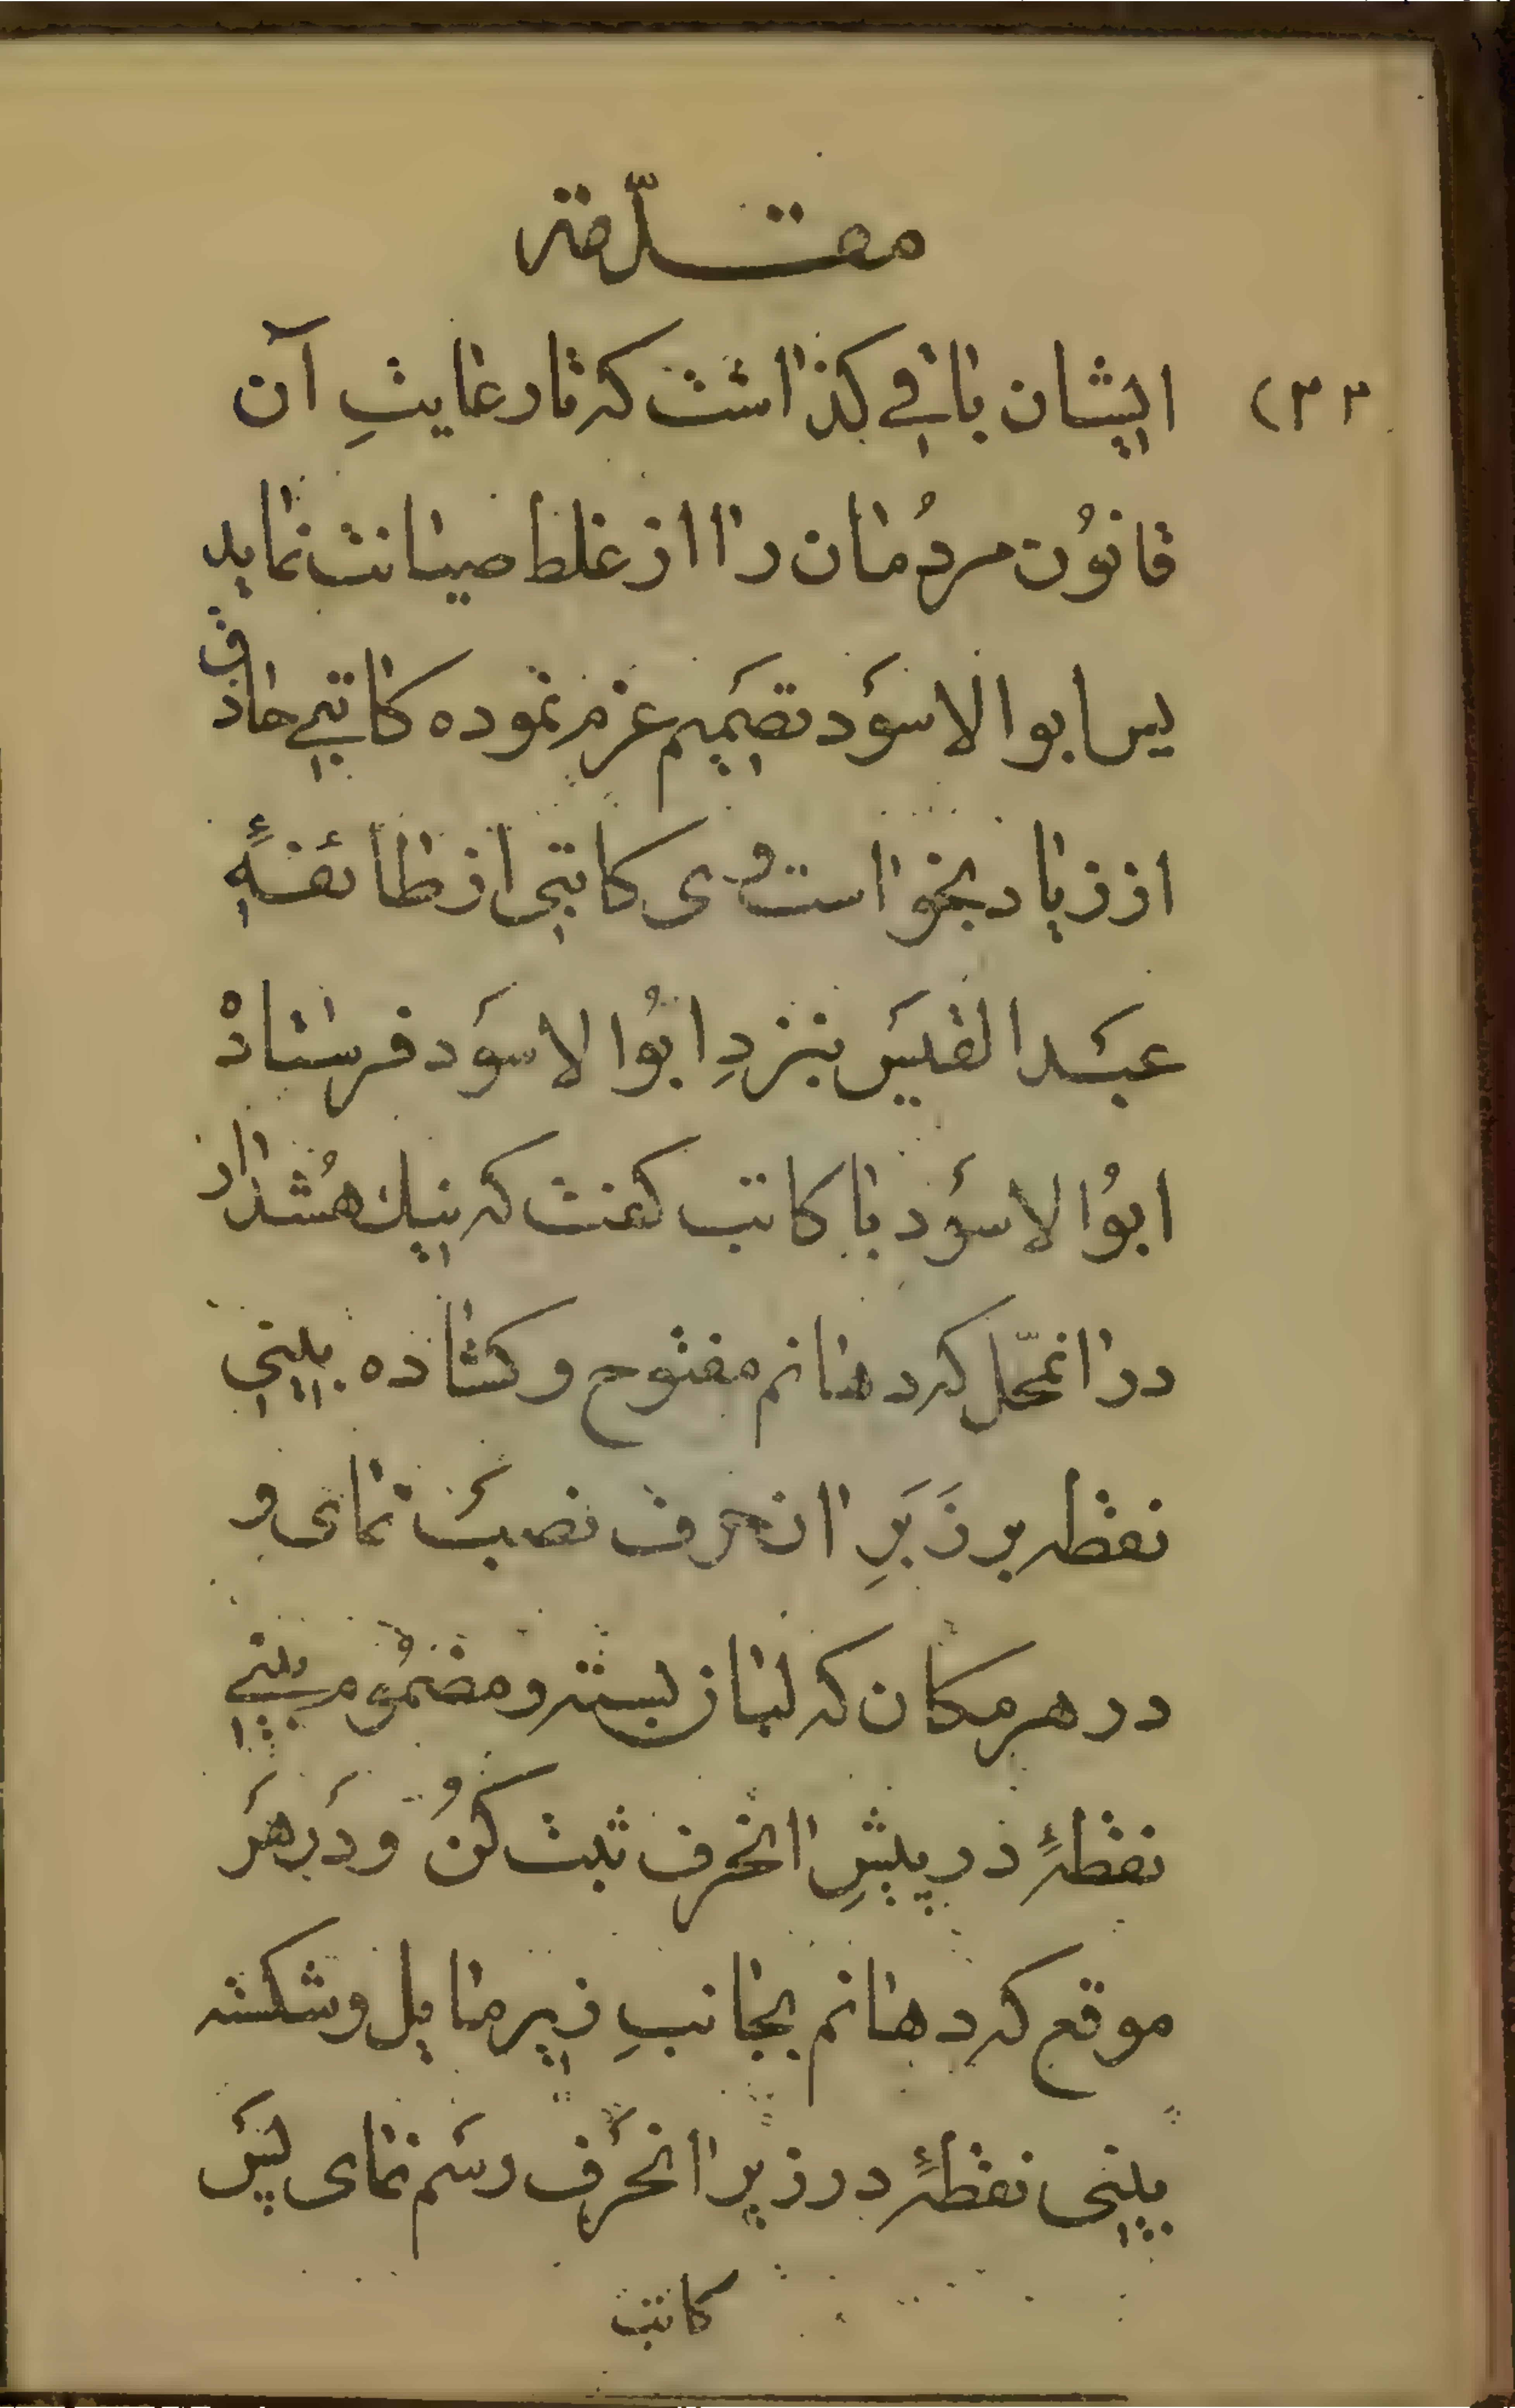 مقدّمة
(۳۳
ایشان باقی کذاشت که تا رعایتِ آن
قانوُن مردُمان را از غلط صیانت نماید
پس ابوالاسوَد تصَمیم عزم نموده کاتبی حاذق
از زیاد بخواست وی کاتبی از طائفهٔ
عبَدالقیَس بنزدِ ابوُالاسوَد فرستادْ
ابوُالاسوَد با کاتب کفت که نیک هُشدار
در انمحّل که دهانم مفتوح و کشاده بینی
نقطه بر زَبَرِ انحرف نصَب نمای و
در هر مکان که لبان بسته و مضموُم بینی
نقطهٔ در پیشِ انحرف ثبت کنُ و دَر هَر
موقع که دهانم بجانبِ زیر مایل و شکسته
بینی نقطهٔ در زیر انحَرف رسَم نمای پسَ
کاتب